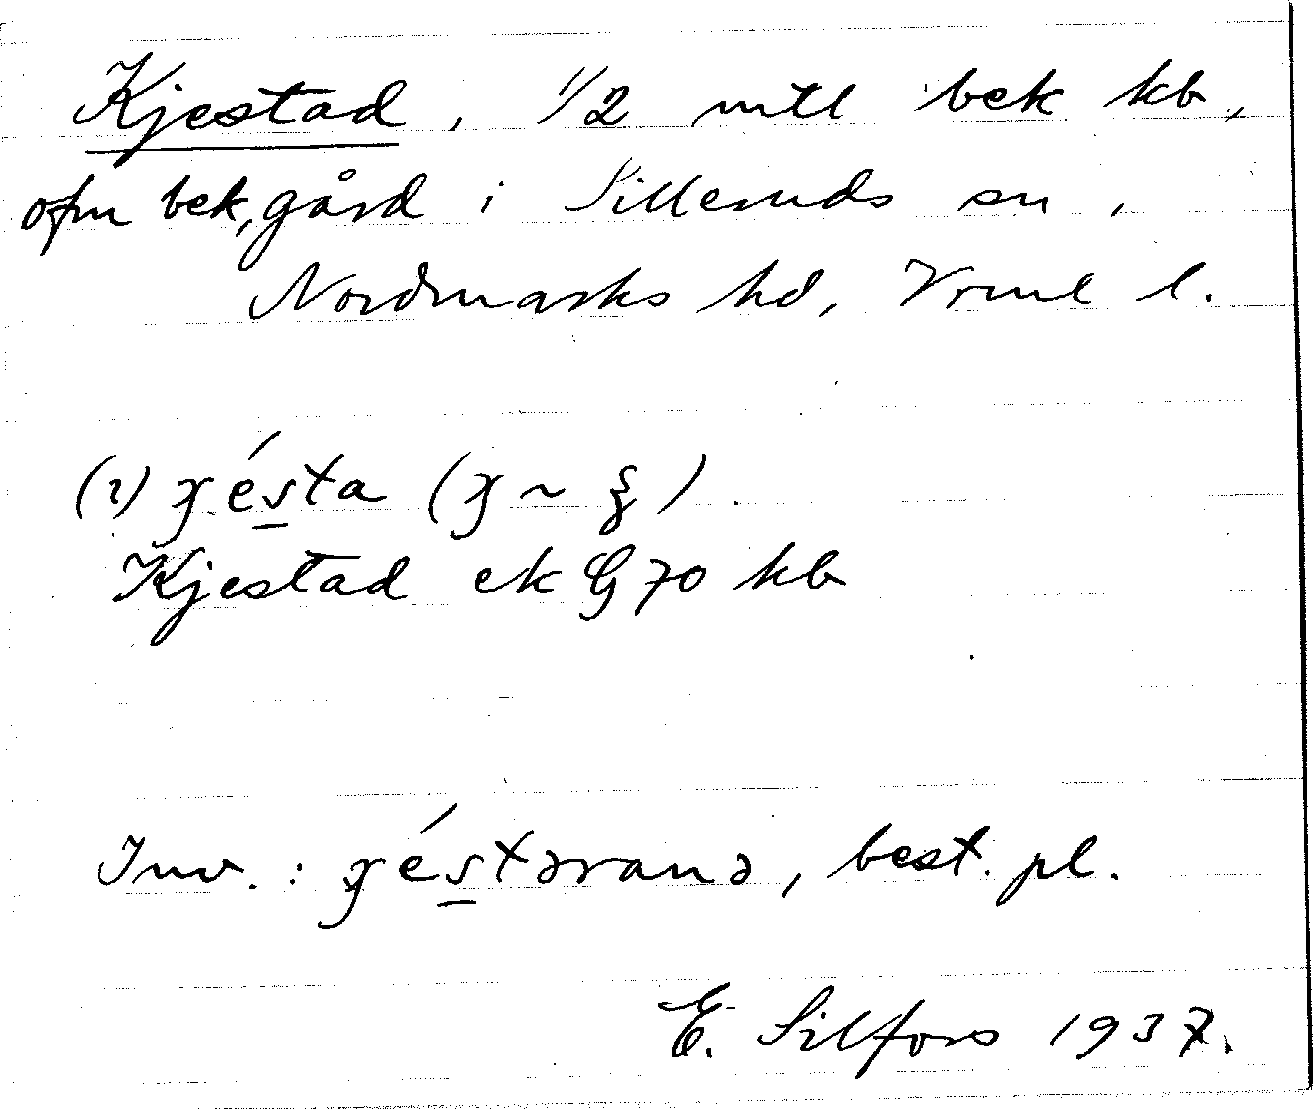 Kjestad, 1/2 mtl bek kb,
ofm bek, gård i Silleruds sn,
Nordmarks hd, Vrml l.
(1) ɟésta (ɟ ~ ʓ).
Kjestad ek G 70 kb
Inv.: ɟéstəranə, best. pl.
E. Silfors 1937.